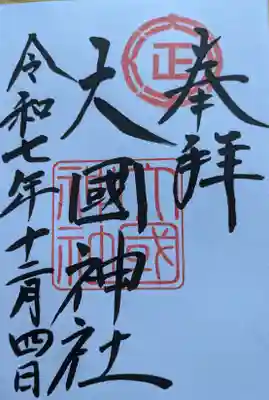 奉拝
大國神社
令和七年十二月四日
正
大國
神社